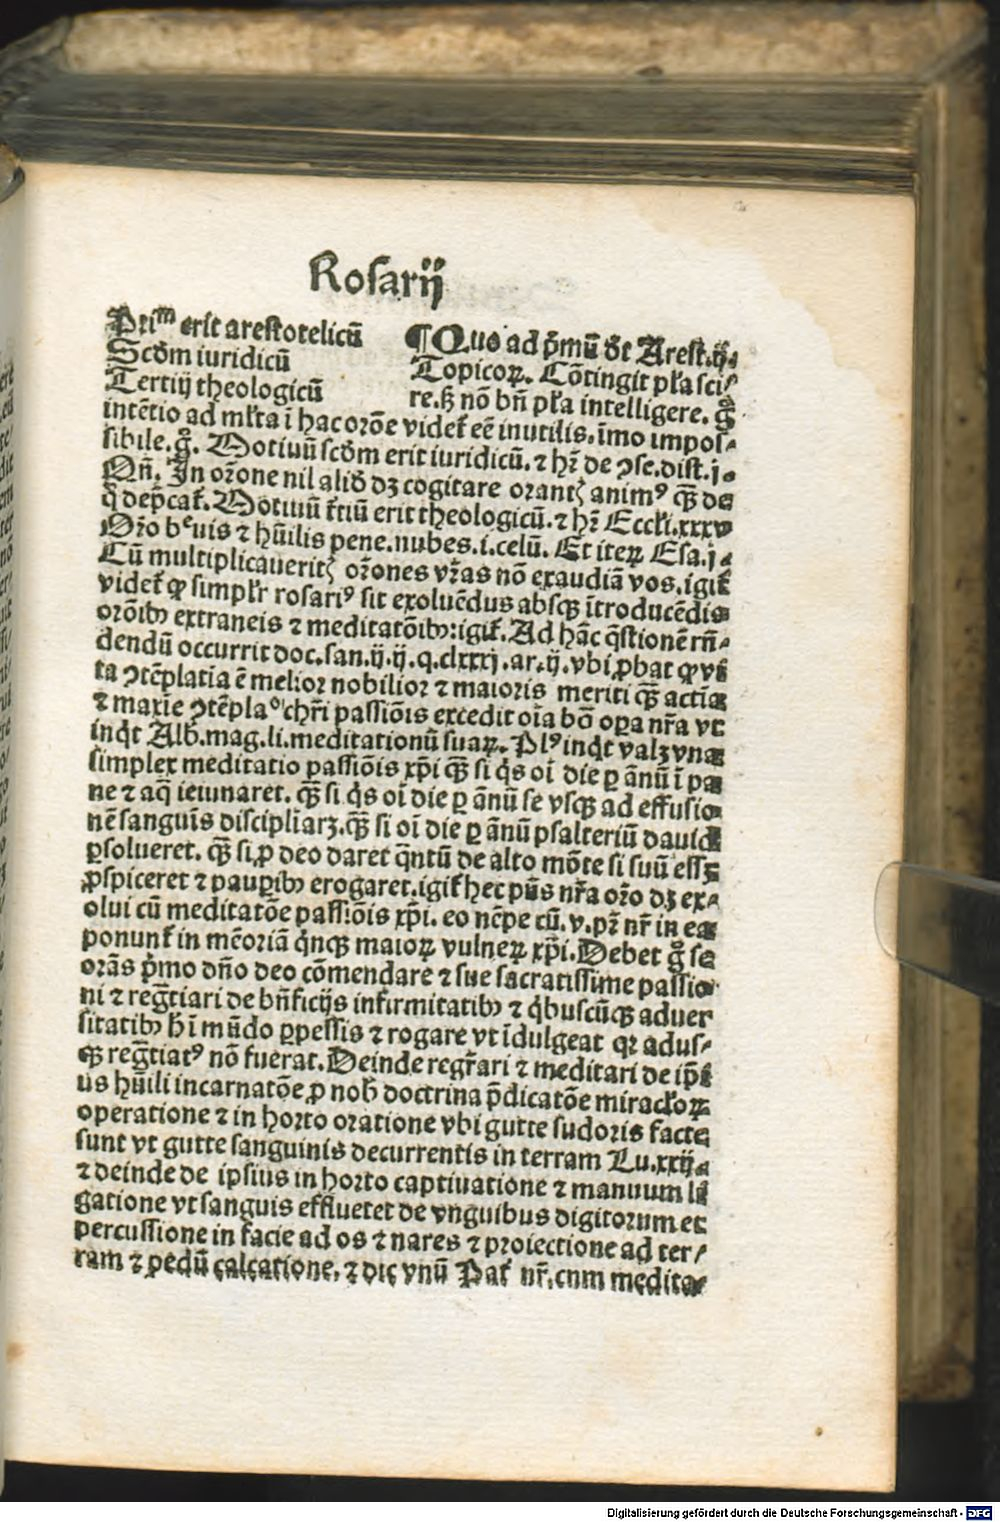 Rosarij
Primͫ erit arestotelicū
Scd̄m iuridicū
Tertij theologicū
¶Quo ad p̄mū dt Arest.ij.
Topicoꝝ. Cōtingit pła sci⸗
re.ꝫ nō bn̄ pła intelligere. g̊
intētio ad młta ī hac orōe videt̄ eē inutilis.īmo impos⸗
sibile.g̊. Motiuū scd̄m erit iuridicū.⁊ hr̄ de ↄse.dist.j.
Qn̄. In or̄one nil aliđ dꝫ cogitare orantꝭ animꝰ qꝫ̄ de
q̊ dep̄cat̄. Motiuū t̄tiū erit theologicū.⁊ hr̄ Eccłi.xxxv
Or̄o bͤuis ⁊ hūilis pene.nubes.i.celū. Et iteꝝ Esa.j.
Cū multiplicaueritꝭ or̄ones vr̄as nō exaudiā vos.igit̄
videt̄ ꝙ simplr̄ rosariꝰ sit exoluēdus absqꝫ ītroducēdis
orōibꝰ extraneis ⁊ meditatōibꝰ:igit̄. Ad hāc q̄stionē rn̄⸗
dendū occurrit doc.san.ij.ij.q.clxxxj.ar.ij.vbi ꝓbat ꝙ vi
ta ↄtēplatīa ē melior nobilior ⁊ maioris meriti qꝫ̄ actīa
⁊ maxīe ↄtēplaͦ chr̄i passiōis excedit oīa bō oꝑa nr̄a vt
inq̇t Alb.mag.li.meditationū suaꝝ. Plꝰ inq̇t valꝫ vna
simplex meditatio passiōis xp̄i qꝫ̄ si q̇s oī die ꝑ ānū ī pa
ne ⁊ aq̄ ieiunaret. qꝫ̄ si q̇s oī die ꝑ ānū se vsqꝫ ad effusio
nē sanguīs discipliarꝫ.qꝫ̄ si oī die ꝑ ānū psalteriū dauid
ꝑsolueret. qꝫ̄ si ꝓ deo daret q̄ntū de alto mōte si suū essꝫ
ꝓspiceret ⁊ pauꝑibꝰ erogaret.igit̄ hec pn̄s nr̄a or̄o dꝫ ex⸗
olui cū meditatōe passiōis xp̄i. eo nēpe cū.v.pr̄ nr̄ in ea
ponunt̄ in mēoriā q̇nqꝫ maioꝝ vulneꝝ xp̄i. Debet g̊ se
orās p̄mo dn̄o deo cōmendare ⁊ sue sacratissime passio
ni ⁊ reg̃tiari de bn̄ficijs infirmitatibꝰ ⁊ q̇buscūqꝫ aduer
sitatibꝰ hī mūdo ꝑpessis ⁊ rogare vt īdulgeat qꝛ adus⸗
qꝫ reg̃tiatꝰ nō fuerat. Deinde regr̃ari ⁊ meditari de ip̄i
us hūili incarnatōe ꝓ nob̄ doctrina p̄dicatōe miracłoꝝ
operatione ⁊ in horto oratione vbi gutte sudoris facte
sunt vt gutte sanguinis decurrentis in terram Lu.xxij.
⁊ deinde de ipsius in horto captiuatione ⁊ manuum li
gatione vt sanguis effluetet de vnguibus digitorum et
percussione in facie ad os ⁊ nares ⁊ proiectione ad ter⸗
ram ⁊ pedū calcatione, ⁊ dic vnū Pat̄ nr̄.cnm medita⸗
Digitalisierung gefördert durch die Deutsche Forschungsgemeinschaft - DFG